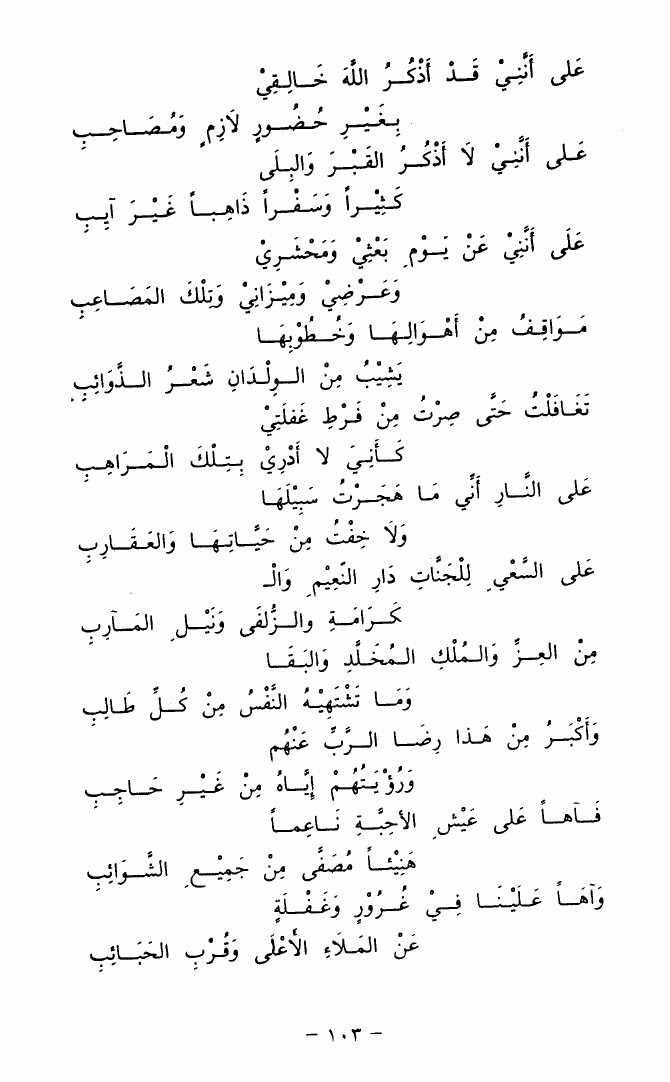 عَلى أَنَّنِيْ قَدْ أَذْكُرُ اللَّهَ خَالِقِيْ
بِغَيْرِ حُضُورٍ لَازِمٍ وَمُصَاحِبِ
عَلى أَنَّنِيْ لَا أَذْكُرُ القَبْرَ وَالبِلَى
كَثِيْراً وَسَفْراً ذَاهِباً غَيْرَ آيِبِ
عَلَى أَنَّنِيْ عَنْ يَوْمِ بَعْثِيْ وَمَحْشَرِيْ
وَعَرْضِيْ وَمِيْزَانِيْ وَتِلْكَ المَصَاعِبِ
مَوَاقِفُ مِنْ أَهْوَالِهَا وَخُطُوْبِهَا
يَشِيْبُ مِنْ الوِلْدَانِ شَعْرُ الذَّوَائِبِ
تَغَافَلْتُ حَتَّى صِرْتُ مِنْ فَرْطِ غَفلَتِيْ
كَأَنِيَ لا أَدْرِيْ بِتِلْكَ الْمَرَاهِبِ
عَلى النَّارِ أَنِّي مَا هَجَرْتُ سَبِيْلَهَا
وَلَا خِفْتُ مِنْ حَيَّاتِهَا وَالعَقَارِبِ
عَلى السَّعْيِ لِلْجَنَّاتِ دَارِ النَّعِيْمِ وَالْـ
كَرَامَةِ والزُّلفَى وَنَيْلِ المَآرِبِ
مِنْ العِزِّ وَالمُلْكِ المُخَلَّدِ وَالبَقَا
وَمَا تَشْتَهِيْهُ النَّفْسُ مِنْ كُلِّ طَالِبِ
وَأَكْبَرُ مِنْ هَذا رِضَا الرَّبِّ عَنْهُم
وَرُؤْيَتُهُمْ إِيَّاهُ مِنْ غَيْرِ حَاجِبِ
فَآهاً عَلى عَيْشِ الأحِبَّةِ نَاعِماً
هَنِيْئاً مُصَفَّى مِنْ جَمِيْعِ الشَّوَائِبِ
وَآهَاً عَلَيْنَا فِيْ غُرُوْرٍ وَغَفْلَةٍ
عَنْ المَلَاءِ الأَعْلَى وَقُرْبِ الحَبَائِبِ
– ١٠٣ –